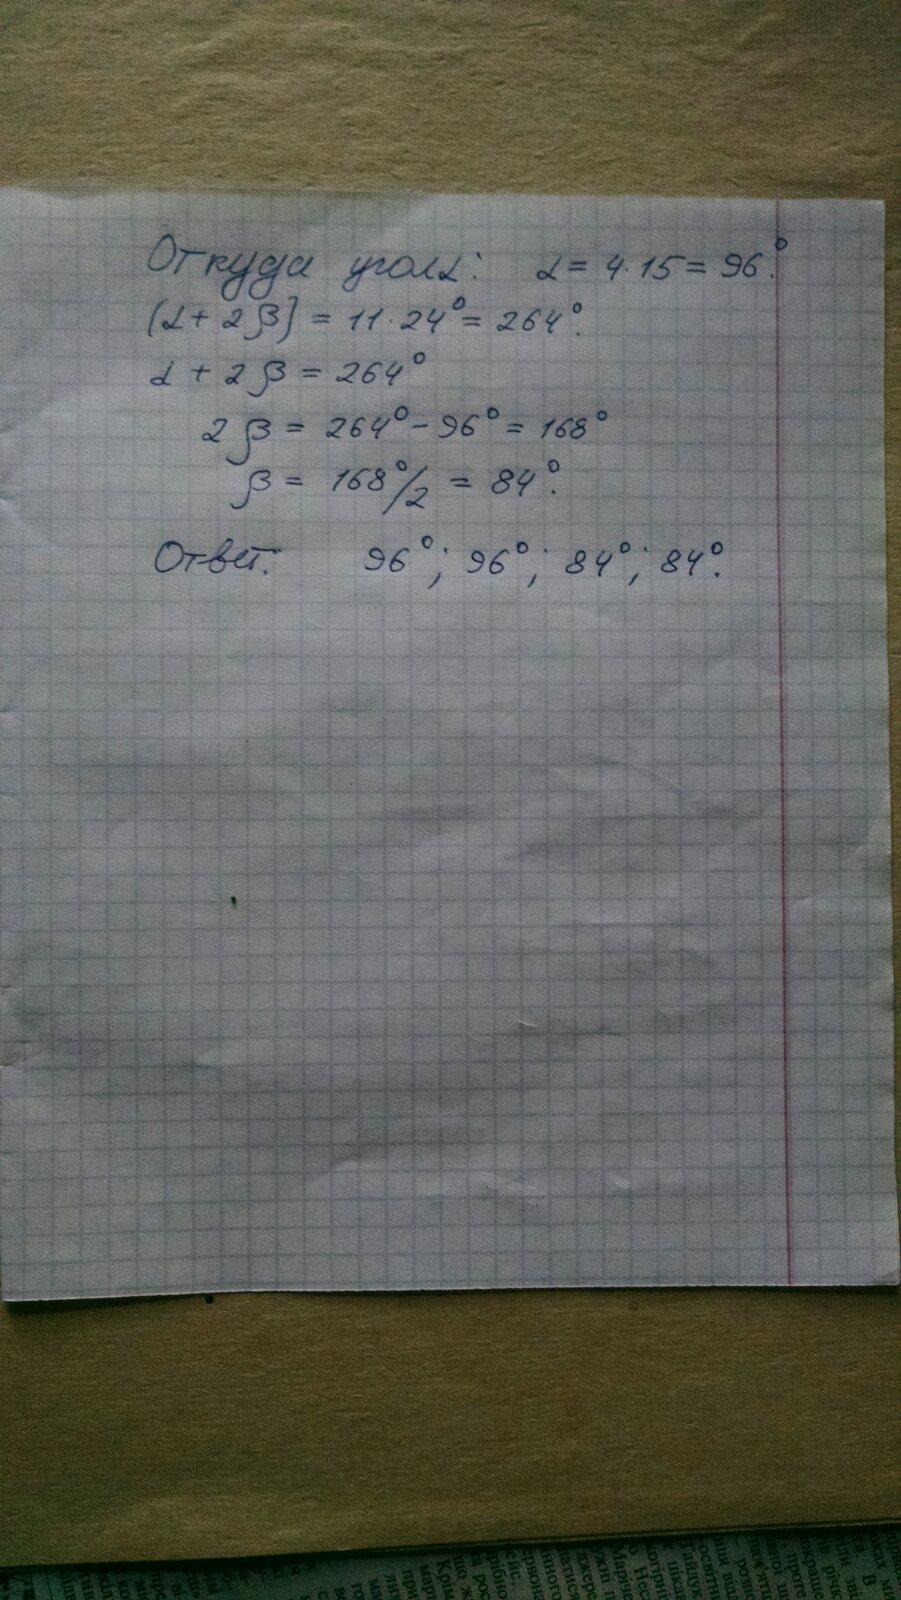 Откуда угол α: α = 4·15 = 96°.
(α + 2β) = 11·24° = 264°.
α + 2β = 264°
2β = 264° - 96° = 168°
β = 168°/2 = 84°.
Ответ: 96°; 96°; 84°; 84°.